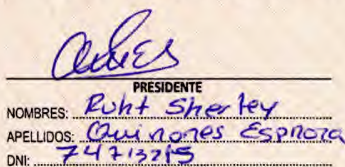 PRESIDENTE
NOMBRES: Ruht Sherley
APELLIDOS: Quinones Espinoza
DNI: 74713715